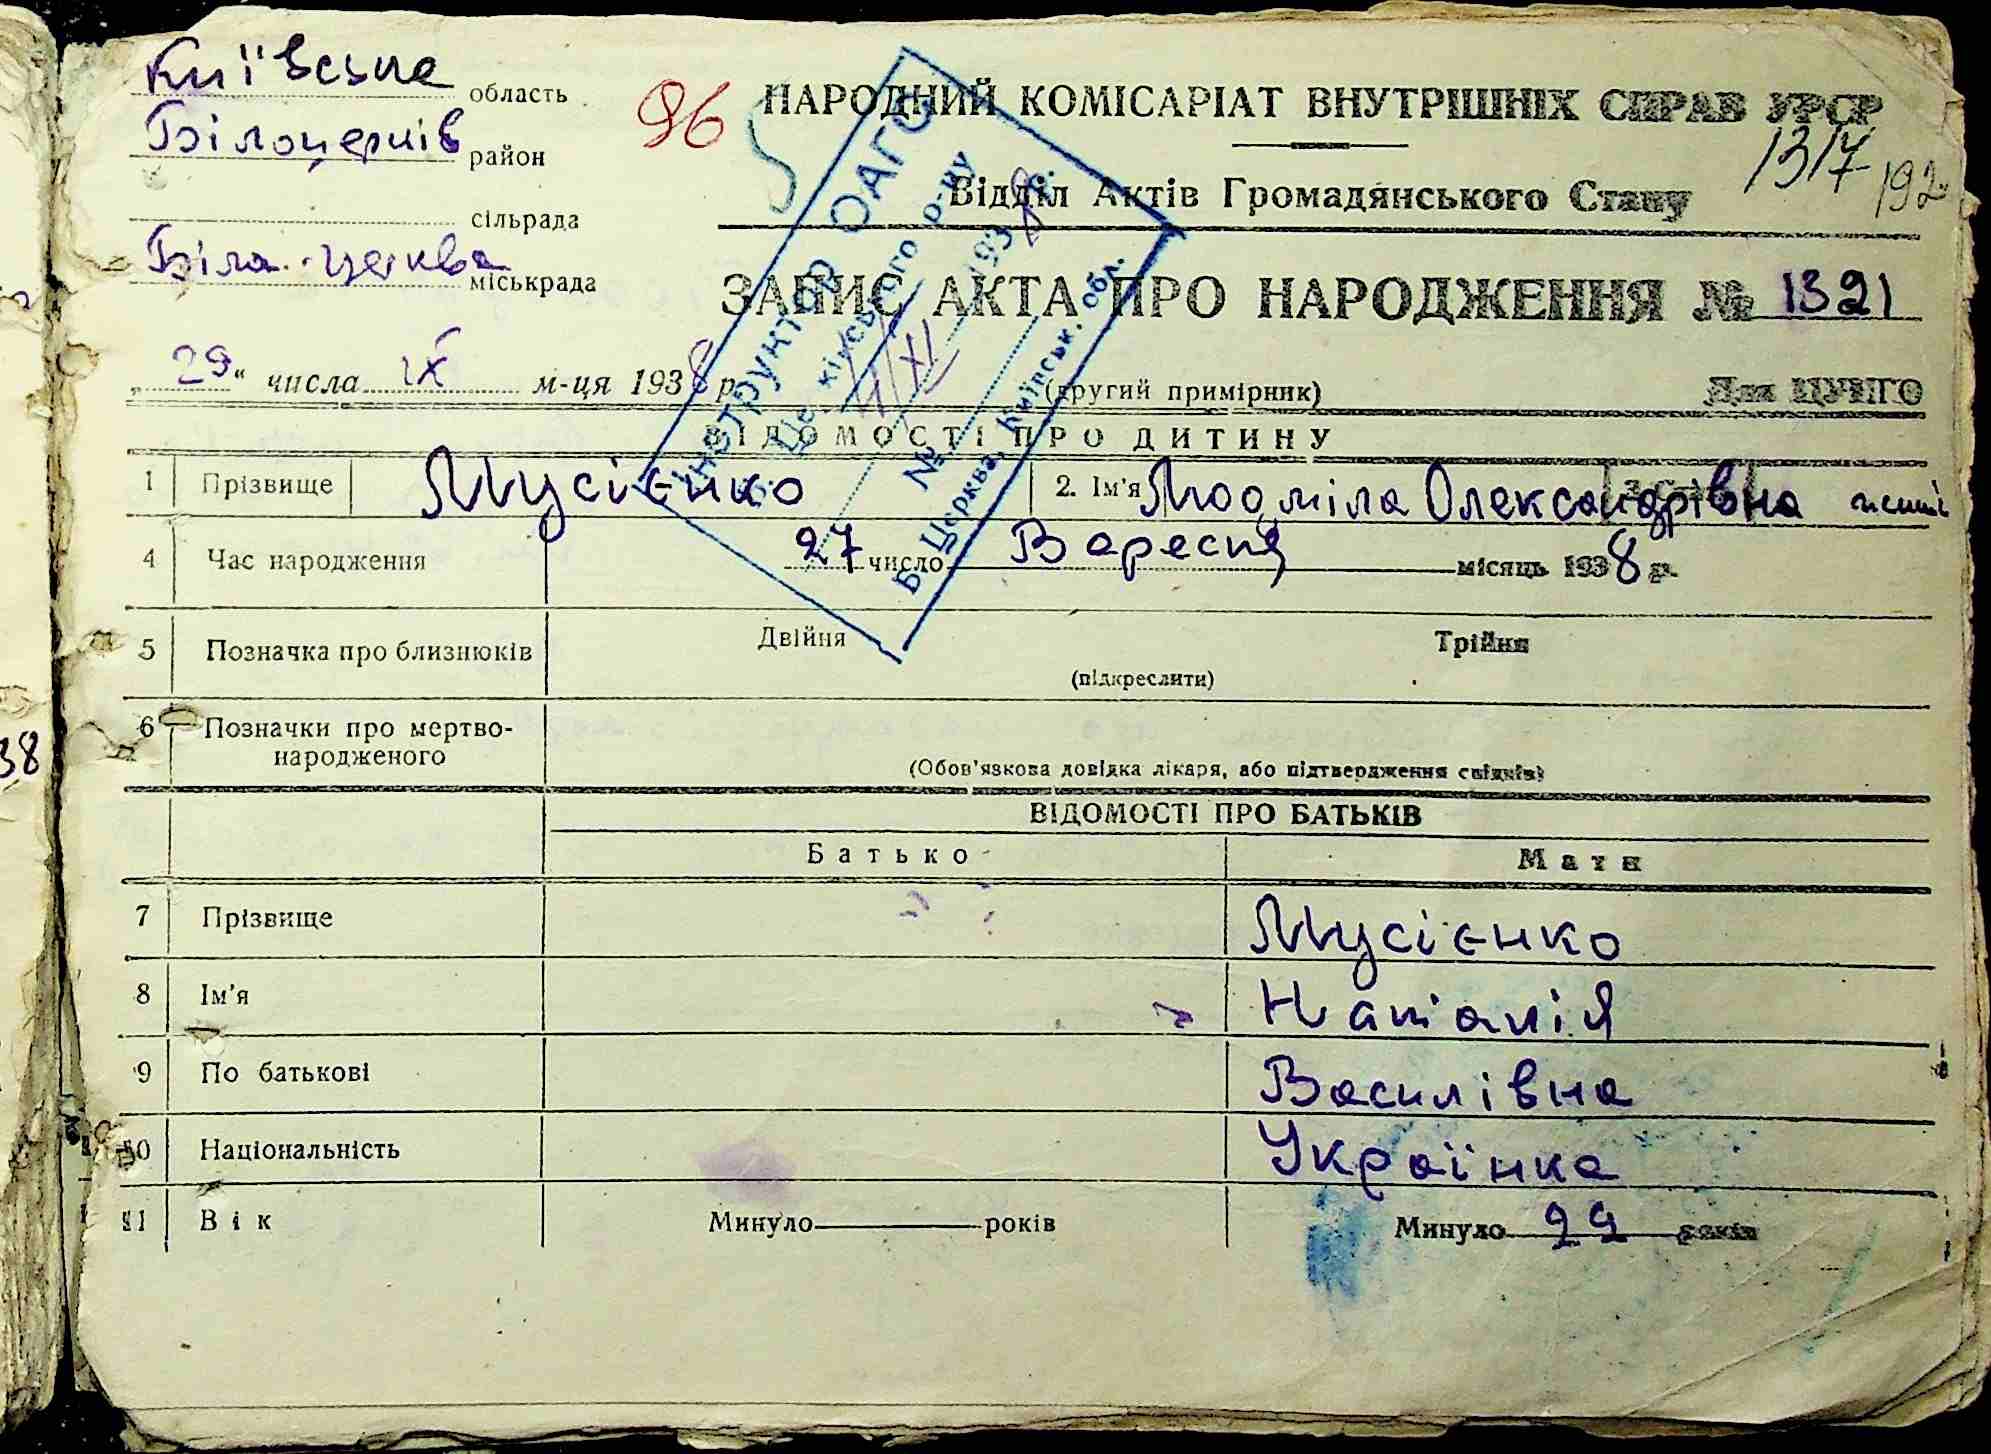 Київська область
Білоцерків район
сільрада
Біла-церква міськрада
96
НАРОДНИЙ КОМІСАРІАТ ВНУТРІШНІХ СПРАВ УРСР
1317
192
Відділ Актів Громадянського Стану
ЗАПИС АКТА ПРО НАРОДЖЕННЯ № 1321
„29“ числа IX м-ця 1938 р.
(другий примірник)
Для ЦУНГО
Інструктор ОАГС
Б. Церківського р-ну
4/XI 1938 р.
№
Б. Церква, Київськ. обл.
ВІДОМОСТІ ПРО ДИТИНУ
1 Прізвище Мусієнко 2. Ім'я Людміла Олександрівна
4 Час народження 27 число Вересня місяць 1938 р.
5 Позначка про близнюків Двійня Трійня
(підкреслити)
6 Позначки про мертво-
народженого
(Обов'язкова довідка лікаря, або підтвердження свідків)
ВІДОМОСТІ ПРО БАТЬКІВ
Батько Мати
7 Прізвище Мусієнко
8 Ім'я Наталія
9 По батькові Василівна
10 Національність Українка
11 Вік Минуло років Минуло 22 років
38